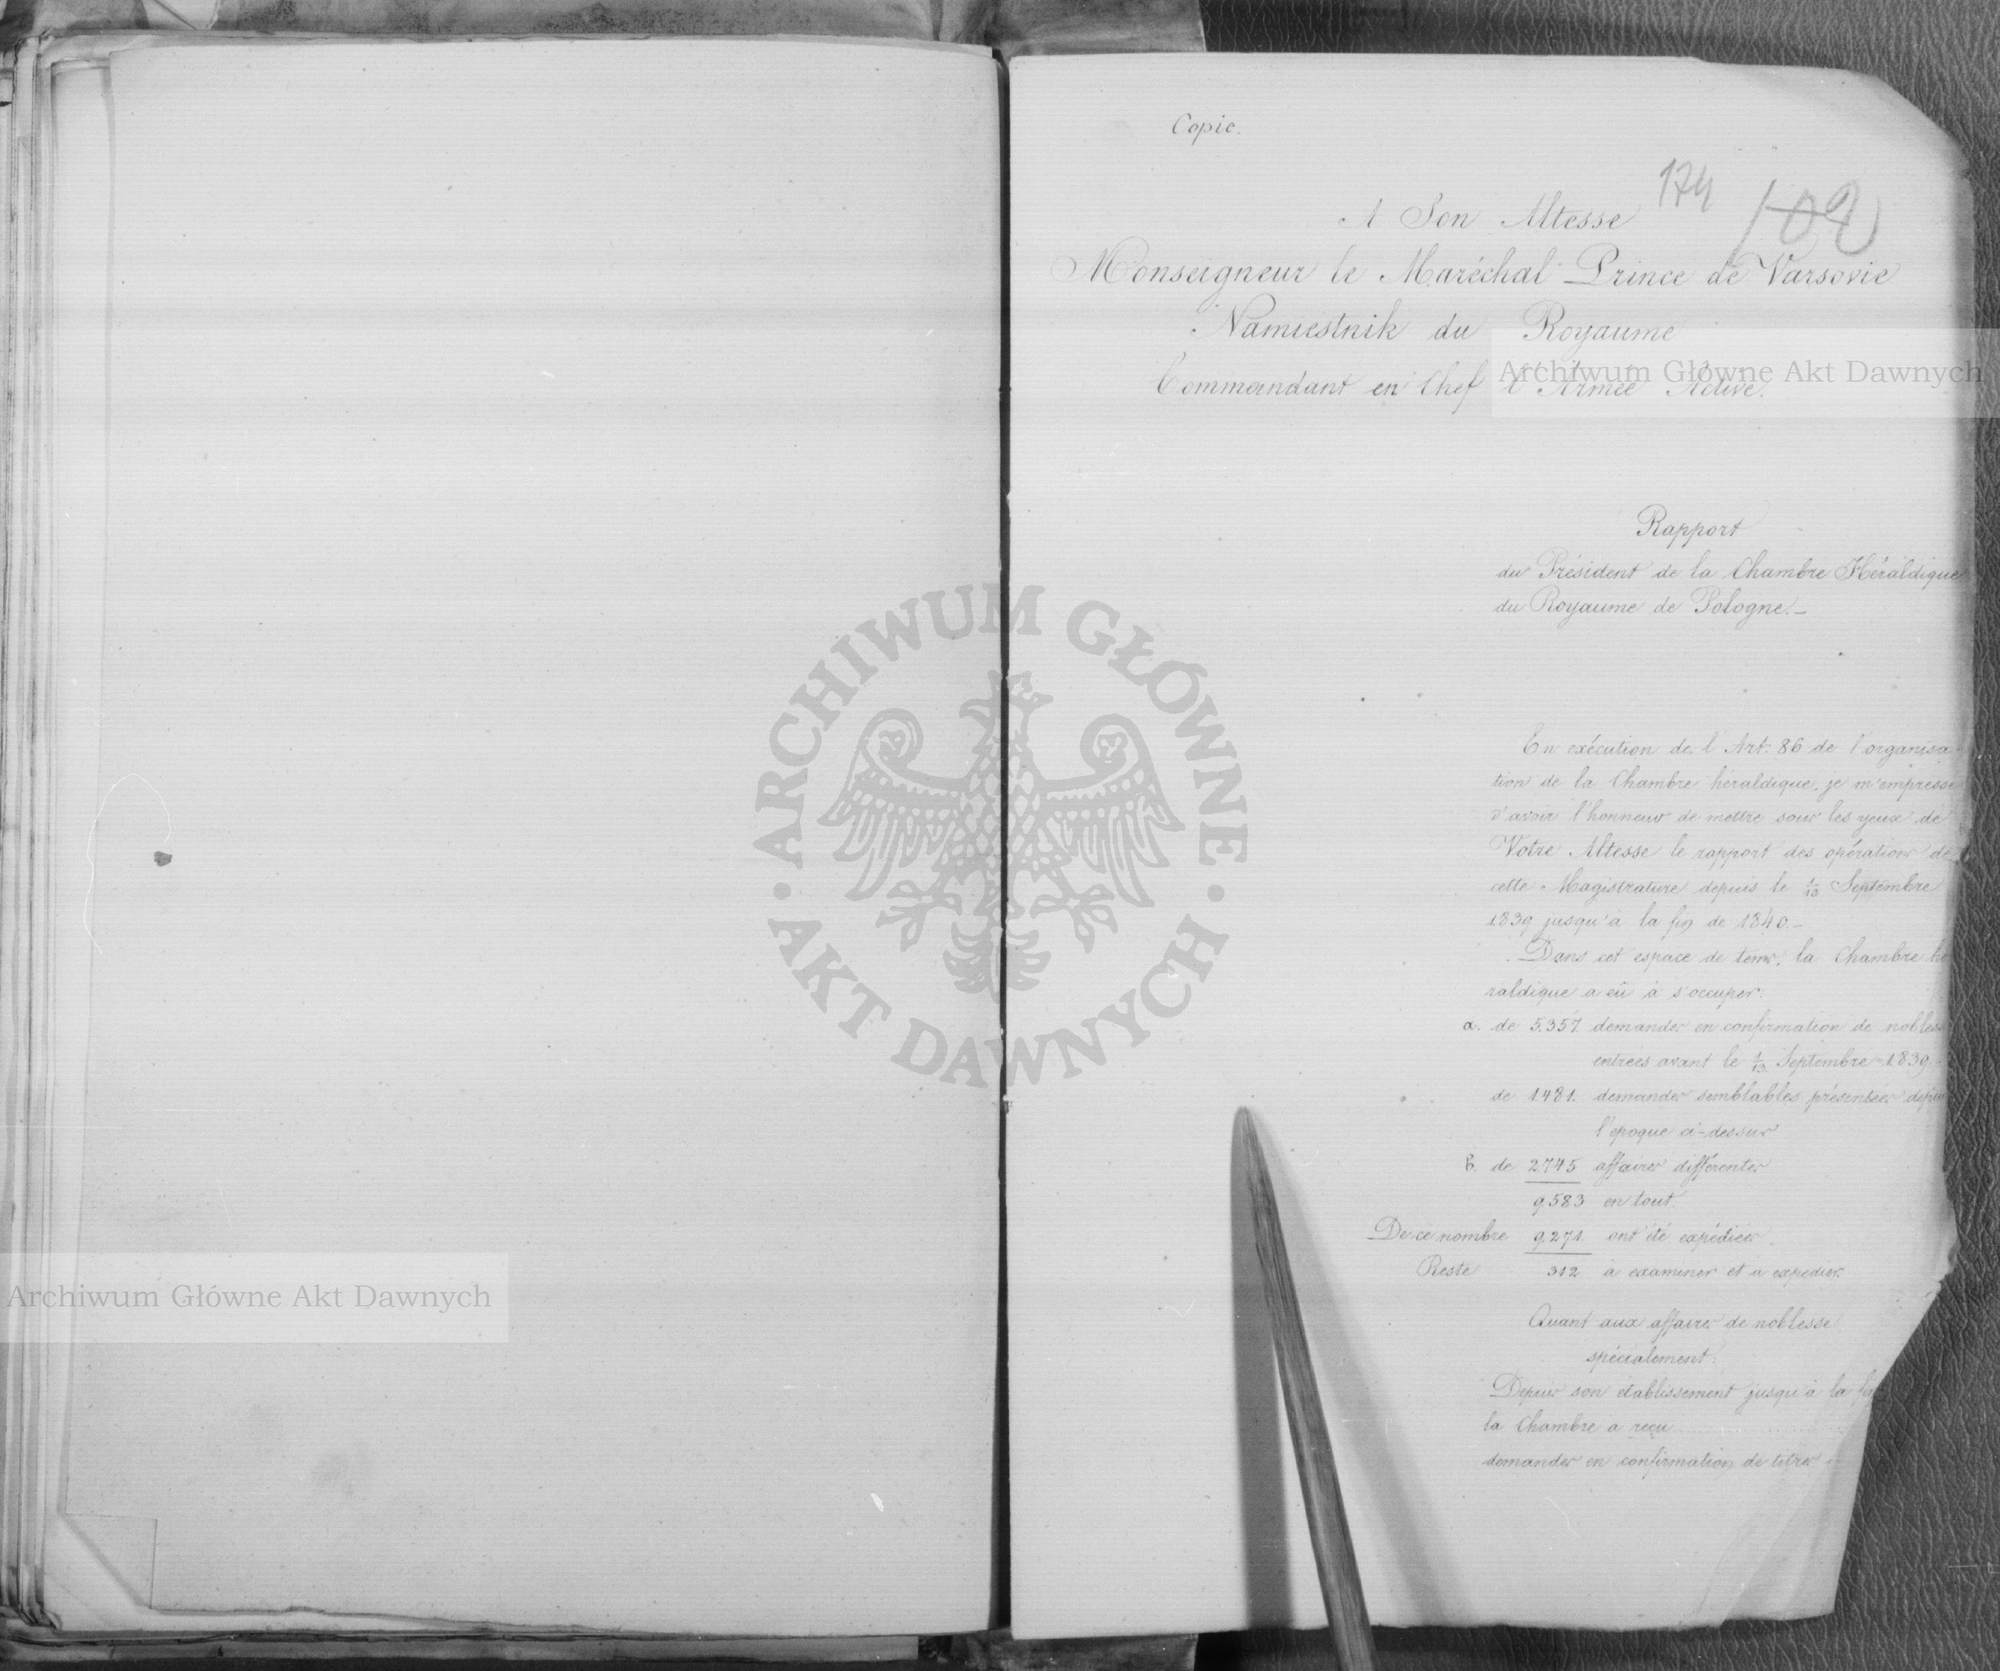 Copie.
174
109
A Son Altesse
Monseigneur le Maréchal Prince de Varsovie
Namiestnik du Royaume
Commandant en Chef l'Armée Active.
Archiwum Główne Akt Dawnych
Rapport
du Président de la Chambre Héraldique
du Royaume de Pologne.
En exécution de l'Art. 86 de l'organisa-
tion de la Chambre héraldique, je m'empresse
d'avoir l'honneur de mettre sous les yeux de
Votre Altesse le rapport des opérations de
cette Magistrature depuis le 1/13 Septembre
1839 jusqu'à la fin de 1840.-
Dans cet espace de tems, la Chambre hé
raldique a eû à s'occuper:
a. de 5.357. demandes en confirmation de nobles
entrées avant le 1/13 Septembre 1839.-
de 1481. demandes semblables présentées depu
l'epoque ci-dessus
b. de 2745 affaires différentes
9583 en tout.
De ce nombre 9.271. ont été expédiées.
Reste 312 à examiner et a expedier.
Quant aux affaires de noblesse
spécialement:
Depuis son établissement jusqu'à la fi
la Chambre a reçu
demandes en confirmation de titres
ARCHIWUM GŁÓWNE AKT DAWNYCH
Archiwum Główne Akt Dawnych